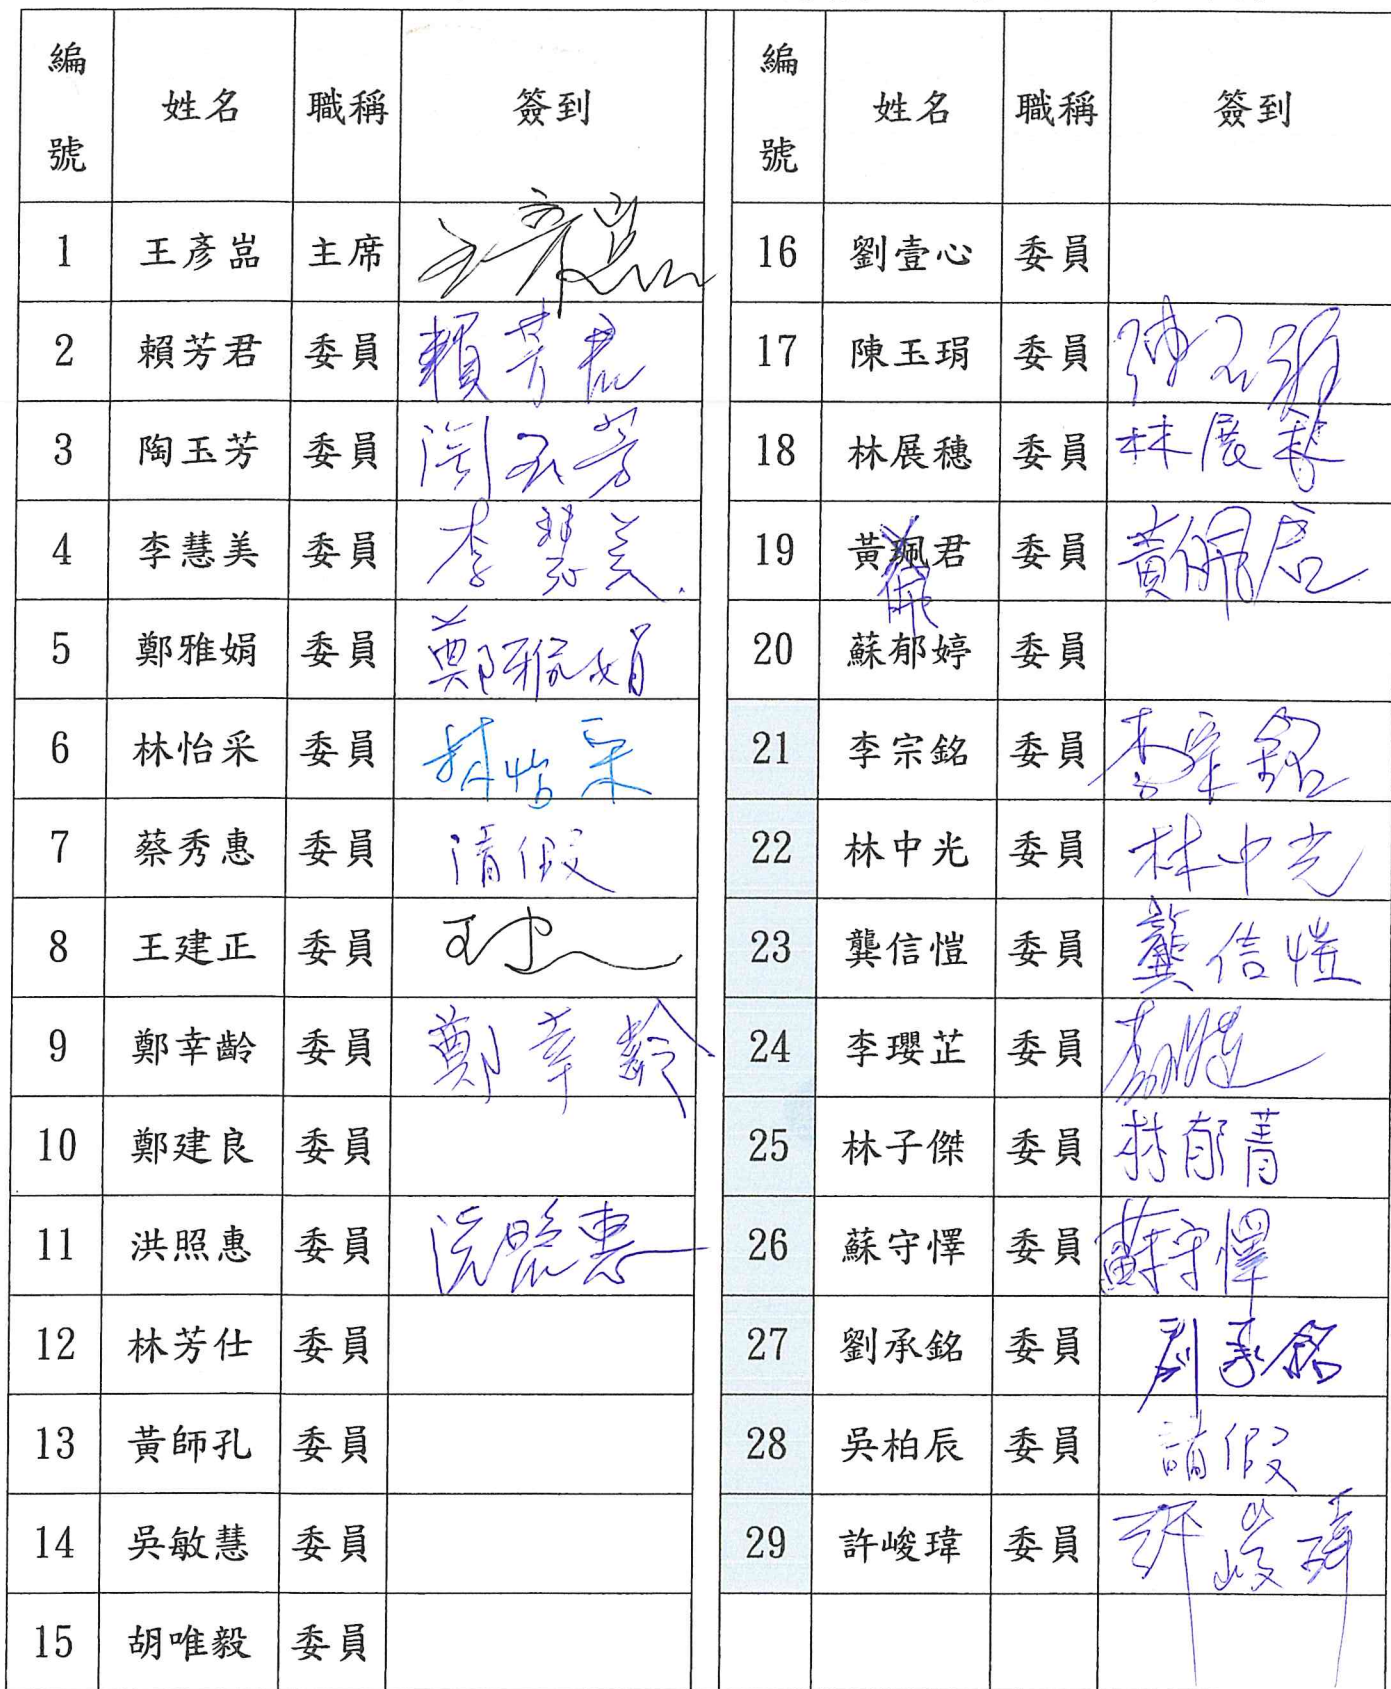 編號 姓名 職稱 簽到
1 王彥嵓 主席 王彥嵓
2 賴芳君 委員 賴芳君
3 陶玉芳 委員 陶玉芳
4 李慧美 委員 李慧美
5 鄭雅娟 委員 鄭雅娟
6 林怡采 委員 林怡采
7 蔡秀惠 委員 請假
8 王建正 委員 王
9 鄭幸齡 委員 鄭幸齡
10 鄭建良 委員
11 洪照惠 委員 洪照惠
12 林芳仕 委員
13 黃師孔 委員
14 吳敏慧 委員
15 胡唯毅 委員
編號 姓名 職稱 簽到
16 劉壹心 委員
17 陳玉琄 委員 陳玉琄
18 林展穗 委員 林展穗
19 黃珮君 委員 黃佩君
佩
20 蘇郁婷 委員
21 李宗銘 委員 李宗銘
22 林中光 委員 林中光
23 龔信愷 委員 龔信愷
24 李瓔芷 委員 李
25 林子傑 委員 林郁菁
26 蘇守懌 委員 蘇守懌
27 劉承銘 委員 劉承銘
28 吳柏辰 委員 請假
29 許峻瑋 委員 許峻瑋